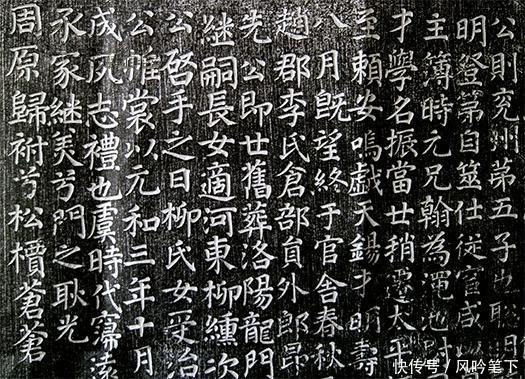 公則兖州第五子也聡
明登第自筮仕従官咸以
主簿時元兄翰為澠池尉
才學名振當世稍遷太平
至頼安嗚戯天錫才明壽
八月旣望終于官舍春秋
趙郡李氏倉部貟外郎昂
先公即世舊葬洛陽龍門
継嗣長女適河東柳纁次
公啓手之日柳氏女受治
公帷裳以元和三年十月
成夙志禮也虞時代寖遠
承家継美兮門之耿光
周原歸祔兮松檟蒼蒼
快传号/风吟笔下